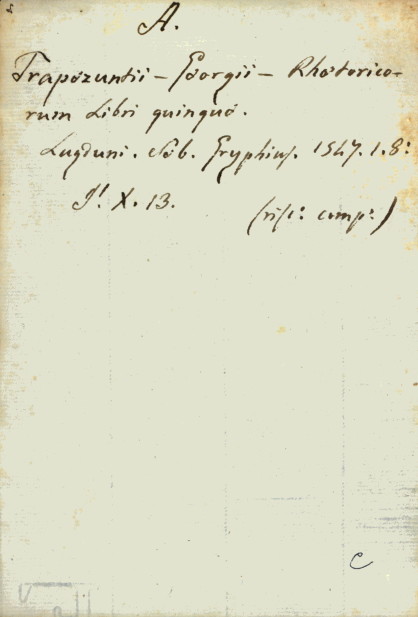 A.
Trapezuntii - Georgii - Rhetorico-
rum Libri quinque.
Lugduni. Seb. Gryphius. 1547. 1. 8:
X. 13.
(risc: comp:)
C